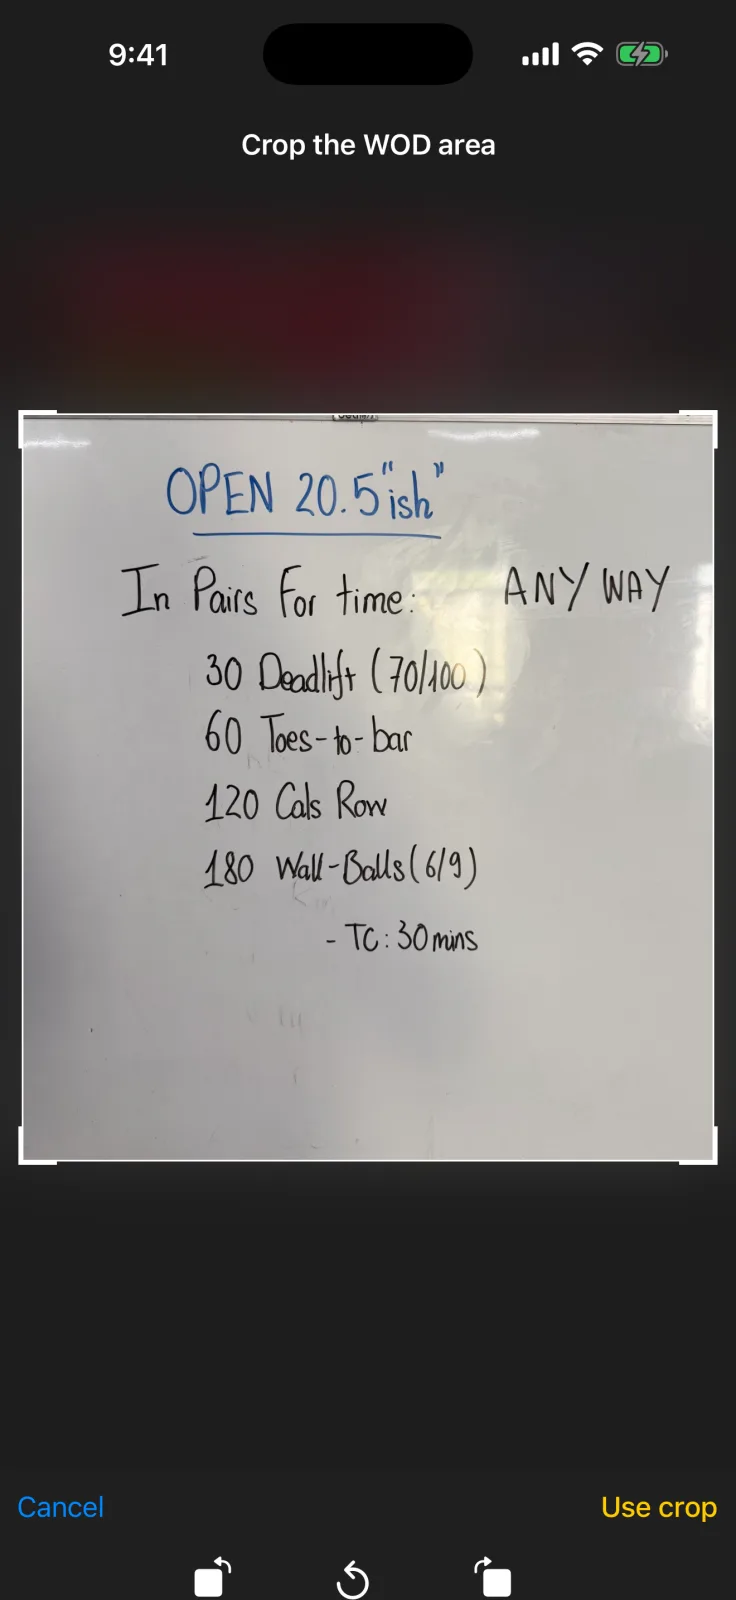 9:41
Crop the WOD area
OPEN 20.5"ish"
In Pairs For time: ANY WAY
30 Deadlift (70/100)
60 Toes-to-bar
120 Cals Row
180 Wall-Balls (6/9)
- TC: 30mins
Cancel Use crop